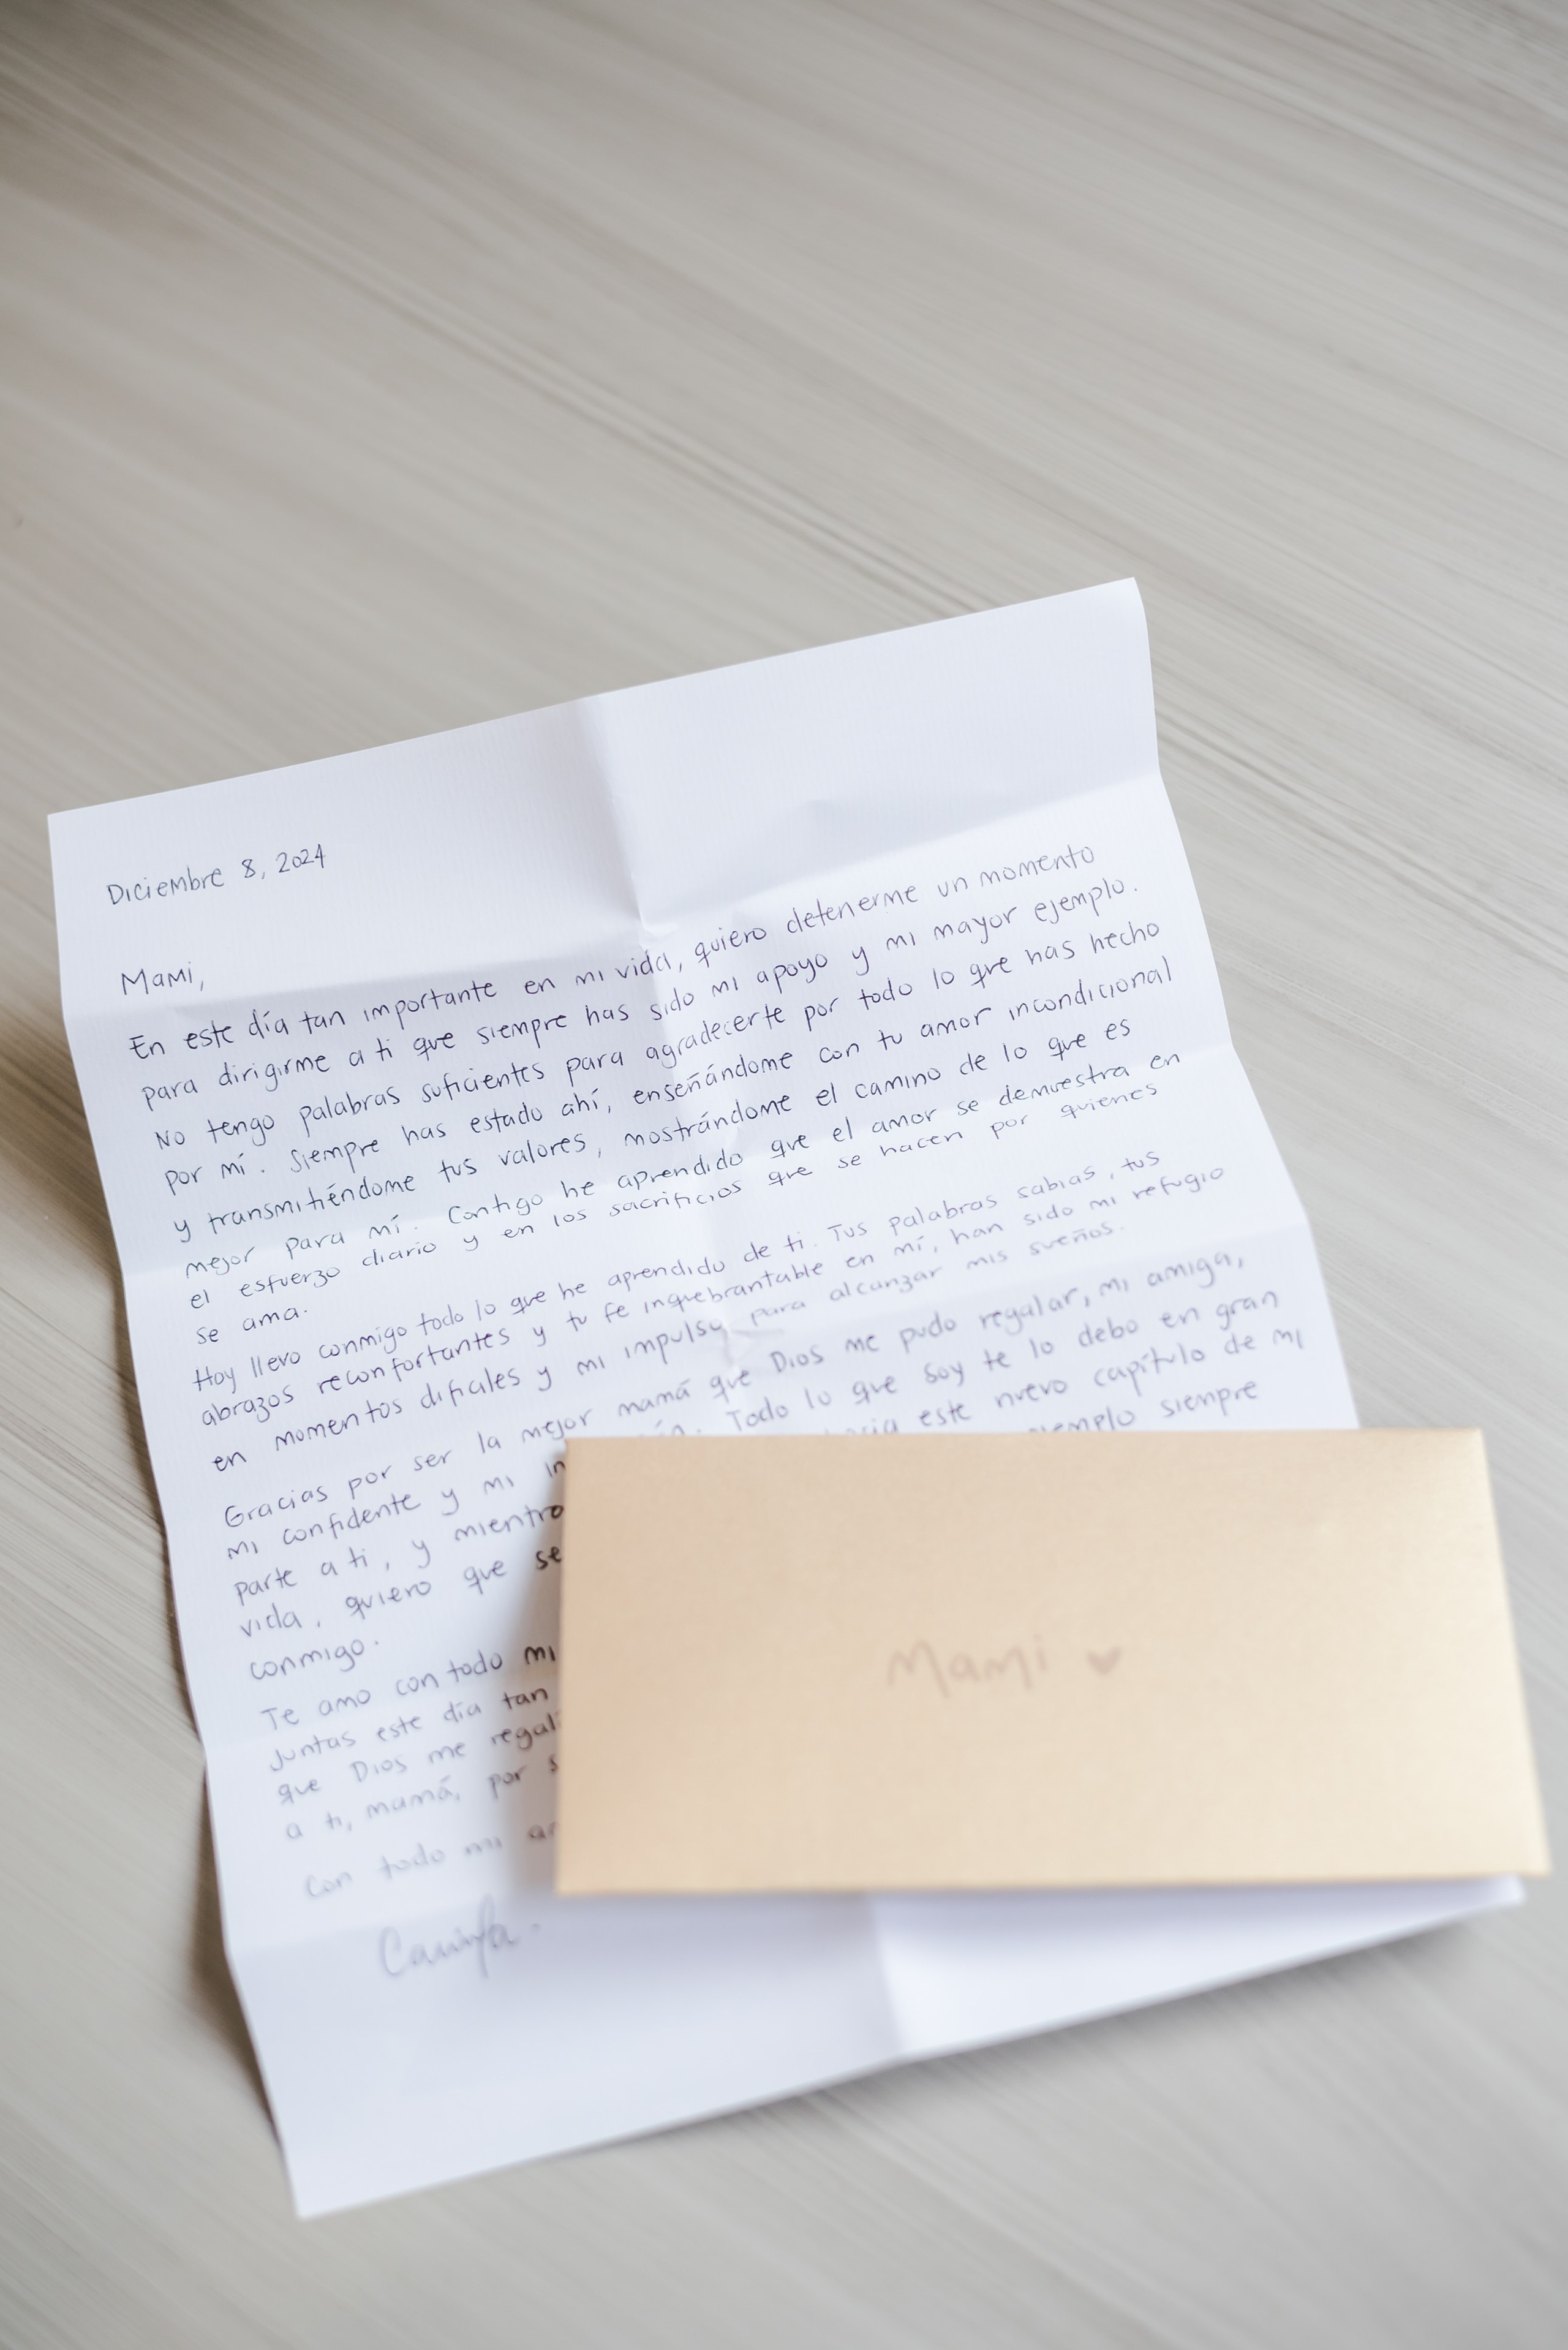 Diciembre 8, 2024
Mami,
En este día tan importante en mi vida, quiero detenerme un momento
para dirigirme a ti que siempre has sido mi apoyo y mi mayor ejemplo.
No tengo palabras suficientes para agradecerte por todo lo que has hecho
por mí. Siempre has estado ahí, enseñándome con tu amor incondicional
y transmitiéndome tus valores, mostrándome el camino de lo que es
mejor para mí. Contigo he aprendido que el amor se demuestra en
el esfuerzo diario y en los sacrificios que se hacen por quienes
se ama.
Hoy llevo conmigo todo lo que he aprendido de ti. Tus palabras sabias, tus
abrazos reconfortantes y tu fe inquebrantable en mí, han sido mi refugio
en momentos difíciles y mi impulso para alcanzar mis sueños.
Gracias por ser la mejor mamá que Dios me pudo regalar, mi amiga,
mi confidente y mi Todo lo que soy te lo debo en gran
parte a ti, y este nuevo capítulo de mi
vida, quiero que siempre
conmigo.
Te amo con todo mi
juntas este día tan
que Dios me
a ti, mamá, por
Con todo mi
Camila.
Mami ♥